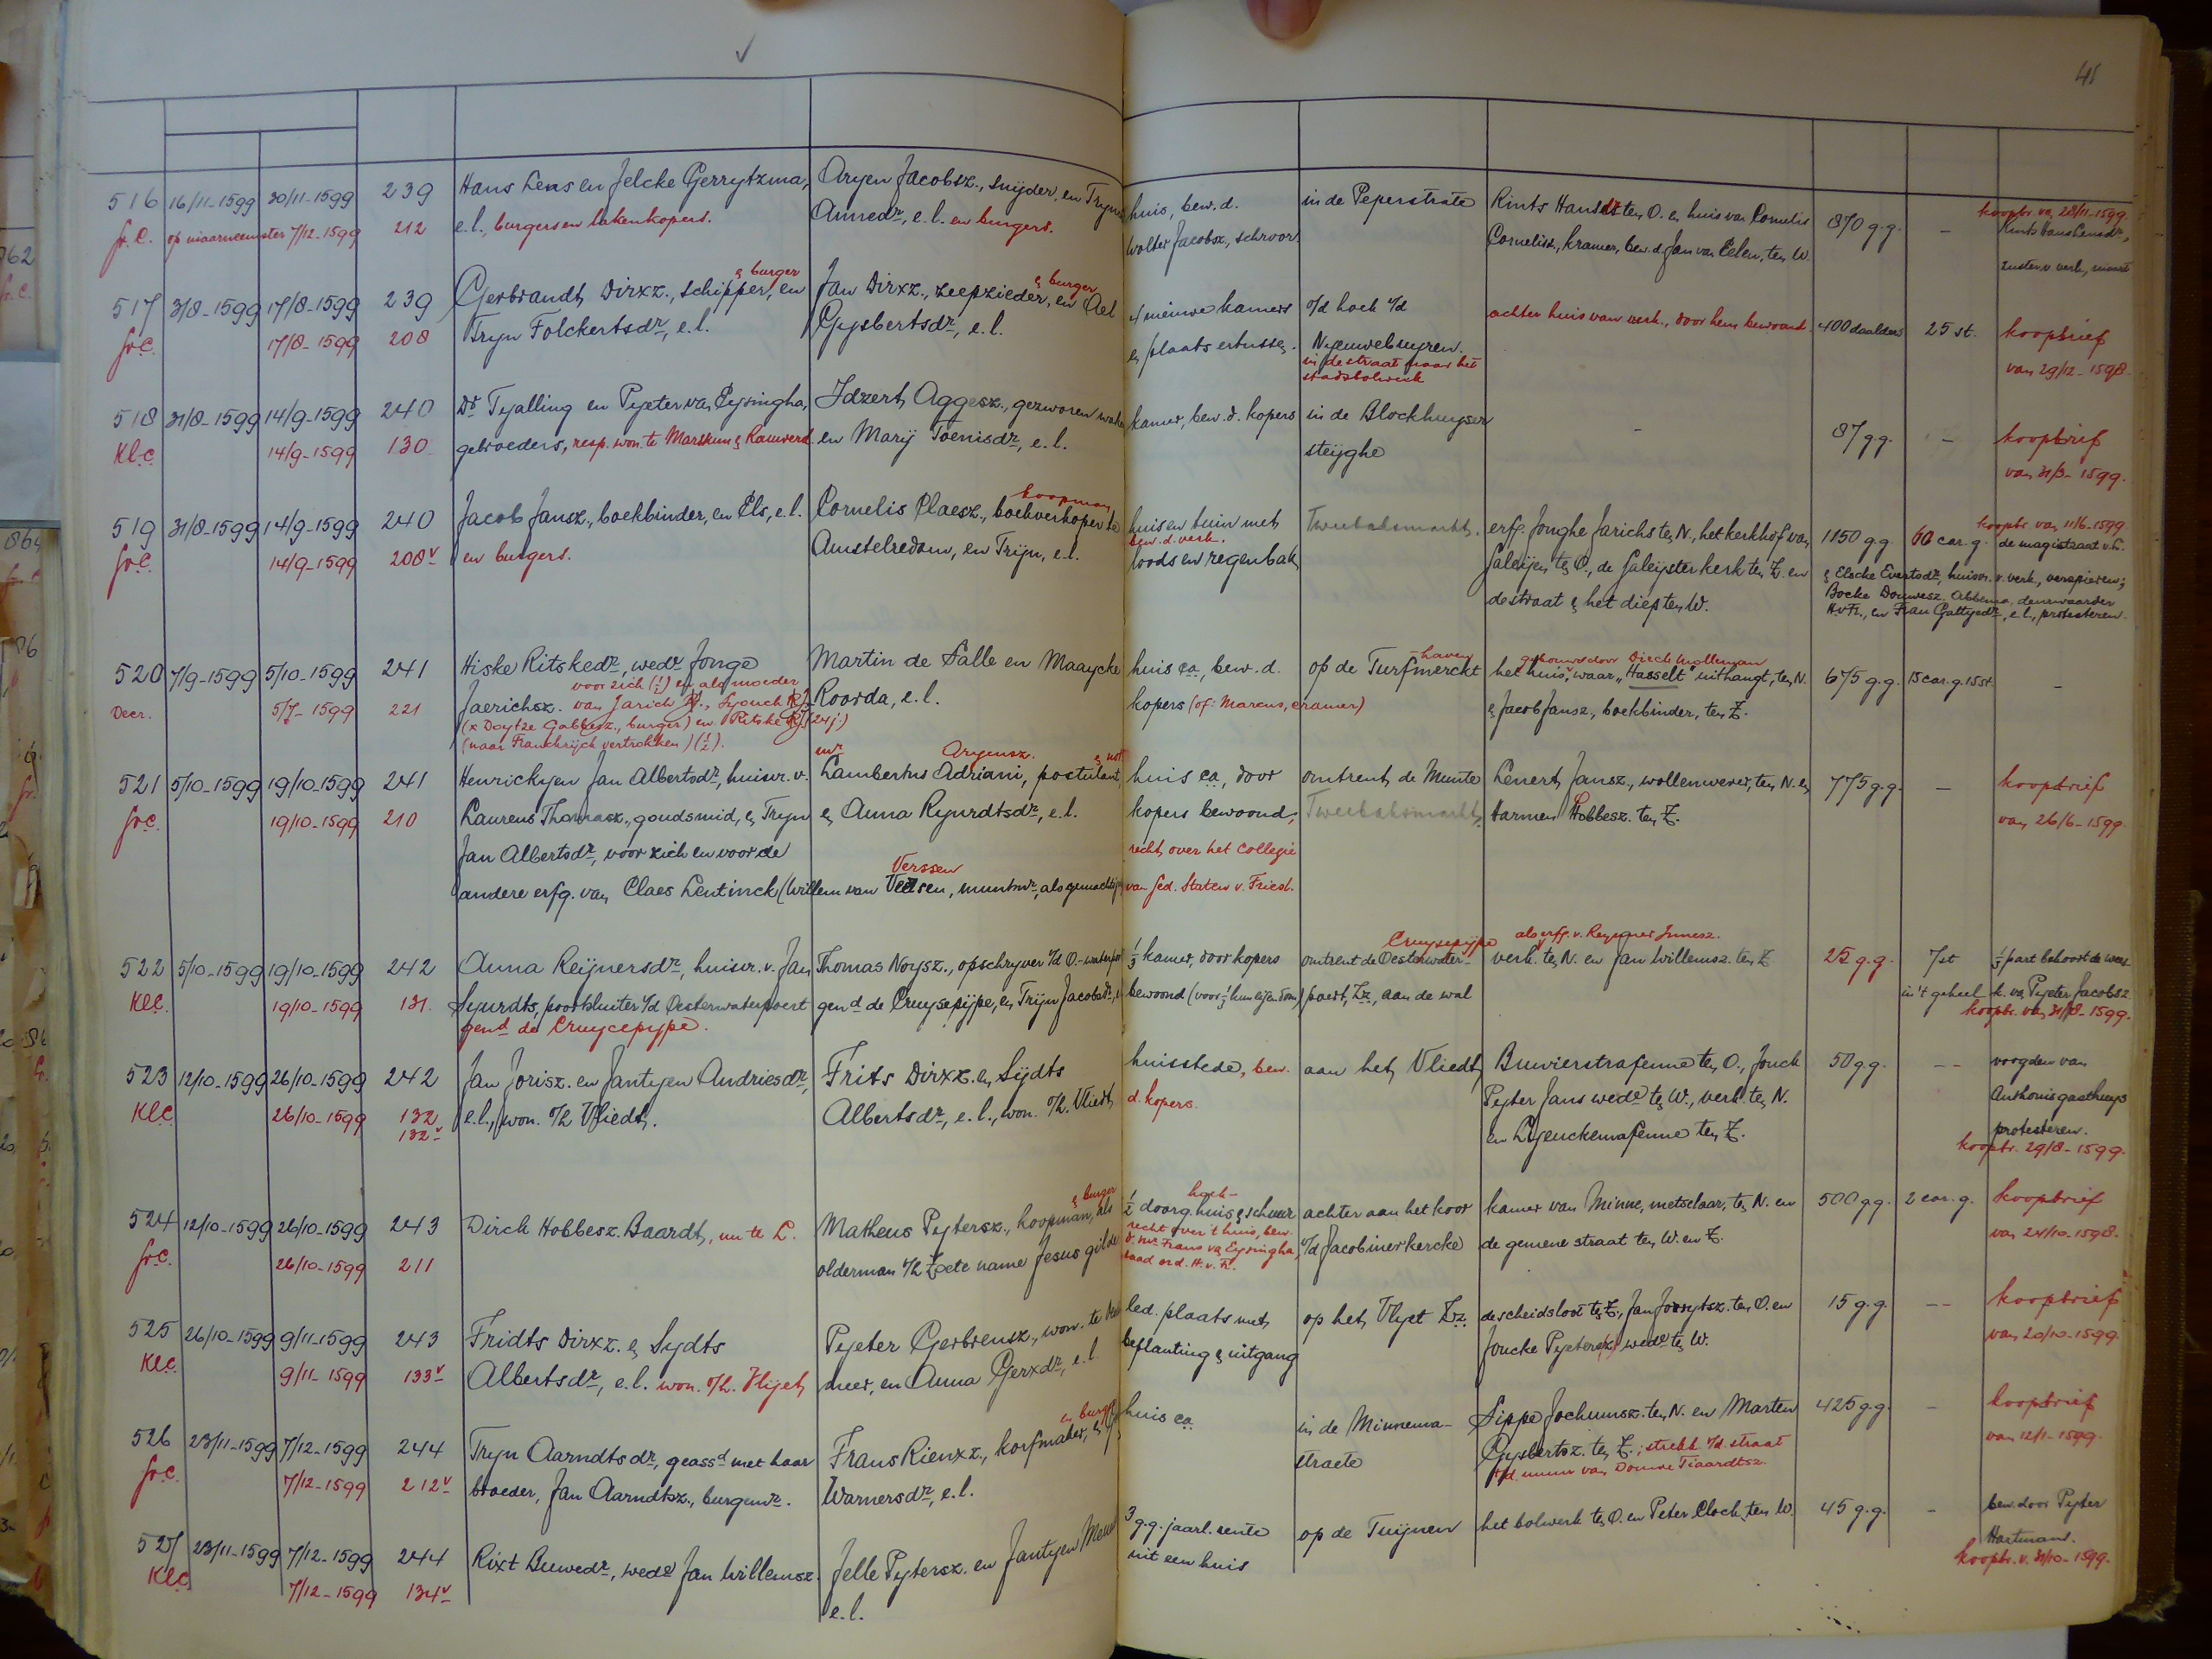 41
516 16/11-1599 30/11-1599 239 Hans Lens en Jelcke Gerrytzma, Aryen Jacobsz., snijder, en Tryn huis, bew. d. in de Peperstrate Rints Hansdr ten O. en huis van Cornelis 870 g.g. - koopbr. van 28/11-1599.
Gr.C. op maarneemster 7/12-1599 212 e.l., burgers en lakenkopers. Annedr, e.l. en burgers. Wolter Jacobsz., schroor Cornelisz, kramer, bew. d. Jan van Eelen, ten W. Rints Hans Lensdr,
zuster v. verk., niaart
517 31/8-1599 17/8-1599 239 Gerbrandt Dirxz., schipper, & burger en Jan Dirxz., zeepzieder, & burger en Ael 4 nieuwe kamers o/d hoek v/d achter huis van verk., door hem bewoond 400 daalders 25 st. koopbrief
Gr.C. 17/8-1599 208 Tryn Folckertsdr, e.l. Gysbertsdr, e.l. en plaats ertussen. Nyeuweburen. van 29/12-1598.
in de straat naar het
stadsbolwerk
518 31/8-1599 14/9-1599 240 Dr Tyalling en Pyeter van Eysingha, Idzert Aggesz., gezworen kamer, bew. d. kopers in de Blockhuyser - 87 g.g. - koopbrief
Kl.C. 14/9-1599 130 gebroeders, resp. won. te Marssum & Rauwerd. en Marij Toenisdr, e.l. steijghe van 31/3-1599.
519 31/8-1599 14/9-1599 240 Jacob Jansz., boekbinder, en Els, e.l. Cornelis Claesz., koopman, boekverkoper te huis en tuin met Tweebaksmarkt. erfg. Jonghe Jarichs ten N., het kerkhof van 1150 g.g. 60 car. g. koopbr. van 11/6-1599.
Gr.C. 14/9-1599 208v en burgers. Amstelredam, en Trijn, e.l. bew. d. verk. loods en regenbak Galeijen ten O., de Galeijster kerk ten Z. en de magistraat v. L.
de straat & het diep ten W. & Elscke Evertsdr, huisvr. v. verk., verspieren;
Bocke Douwesz. Abbema, deurwaarder
H.v.Fr., en Frau Gattyedr, e.l., protesteren.
520 7/9-1599 5/10-1599 241 Hiske Ritskedr, wede Jonge Martin de Salle en Maaycke huis ca., bew. d. op de Turfmerckt -haven het huis, gebouwd door Dirck Molleman waar "Hasselt" uithangt, ten N. 675 g.g. 15 car. g. 15 st. -
Decr. 5/7-1599 221 Jaerichsz. voor zich (½) en als moeder van Jarich, Syouck Roorda, e.l. kopers (of: Marcus, cramer) & Jacob Jansz., boekbinder, ten Z.
(x Doytze Gabbesz., burger) en Ritske (24 j)
(naar Franckrijck vertrokken) (½).
521 5/10-1599 19/10-1599 241 Henrickyen Jan Albertsdr, huisvr. v. mr Lambertus Adriani, Aryensz. postulant & not huis ca., door omtrent de Munte Lenert Jansz., wollenwever, ten N. en 775 g.g. - koopbrief
Gr.C. 19/10-1599 210 Laurens Thomasz., goudsmid, & Tryn & Anna Ryurdtsdr, e.l. kopers bewoond; Tweebaksmarkt. Harmen Hobbesz. ten Z. van 26/6-1599.
Jan Albertsdr, voor zich en voor de recht over het Collegie
andere erfg. van Claes Lentinck (Willem van Velsen, Verssen muntmr, als gemachtigde van Ged. Staten v. Friesl.
522 5/10-1599 19/10-1599 242 Anna Reijnersdr, huisvr. v. Jan Thomas Noysz., opschryver v/d O.-waterpoort ⅓ kamer, door kopers omtrent de Oesterwater- Cruysepijpe als erfg. v. Reyner Innesz. verk. ten N. en Jan Willemsz. ten Z. 25 g.g. 7 st ⅓ part behoort de wees
Kl.C. 19/10-1599 131. Syurdts, poortsluiter v/d Oesterwaterpoert gend de Cruysepijpe, en Trijn Jacobsdr, bewoond (voor ⅓ hun eigendom) poert, Zz, aan de wal in 't geheel k. van Pyeter Jacobsz.
gend de Cruycepype. koopbr. van 31/8-1599.
523 12/10-1599 26/10-1599 242 Jan Jorisz. en Jantyen Andriesdr, Frits Dirxz. en Sydts huisstede, bew. aan het Vliedt Buwierstrafenne ten O., Jouck 50 g.g. -- voogden van
Kl.C. 26/10-1599 132 e.l., won. o/h Vliedt. Albertsdr, e.l., won. o/h. Vliedt d. kopers. Pyter Jans wede ten W., verk. ten N. Anthonis gasthuys
132v en Lyenckemafenne ten Z. protesteren.
koopbr. 29/8-1599.
524 12/10-1599 26/10-1599 243 Dirck Hobbesz. Baardt, nu te L. Matheus Pytersz., koopman, & burger als ½ doorg. hoek- huis & schuur achter aan het koor kamer van Minne, metselaar, ten N. en 500 g.g. 2 car. g. koopbrief
Gr.C. 26/10-1599 211 olderman v/h Zoete name Jesus gilde recht over 't huis, bew. v/d Jacobinerkercke de gemene straat ten W. en Z. van 24/10-1598.
d. mr Frans van Eysingha,
raad ord. H. v. Fr.
525 26/10-1599 9/11-1599 243 Fridts Dirxz. & Sydts Pyeter Gerbrensz., won. te led. plaats met op het Vlyet Zz. de scheidsloot ten Z., Jan Jorrytsz. ten O. en 15 g.g. -- koopbrief
Kl.C. 9/11-1599 133v Albertsdr, e.l. won. o/h. Vlijet en Anna Gerxdr, e.l. beplanting & uitgang Joucke Pyetersz. wede ten W. van 20/10-1599.
526 23/11-1599 7/12-1599 244 Tryn Aarndtsdr, geassd met haar Frans Rienxz., korfmaker, en burger huis ca. in de Minnema- Sippe Jochumsz. ten N. en Marten 425 g.g. - koopbrief
Gr.C. 7/12-1599 212v broeder, Jan Aarndtsz., burgemr. Warnersdr, e.l. straete Gysbertsz. ten Z.; strekt v/d. straat van 12/11-1599.
t/d. muur van Douwe Tiaardtsz.
527 23/11-1599 7/12-1599 244 Rixt Buwedr, wede Jan Willemsz. Jelle Pytersz. en Jantyen 3 g.g. jaarl. rente op de Tuijnen het bolwerk ten O. en Peter Clock ten W. 45 g.g. - bew. door Pyter
Kl.C. 7/12-1599 134v e.l. uit een huis Hartmans.
koopbr. v. 31/10-1599.